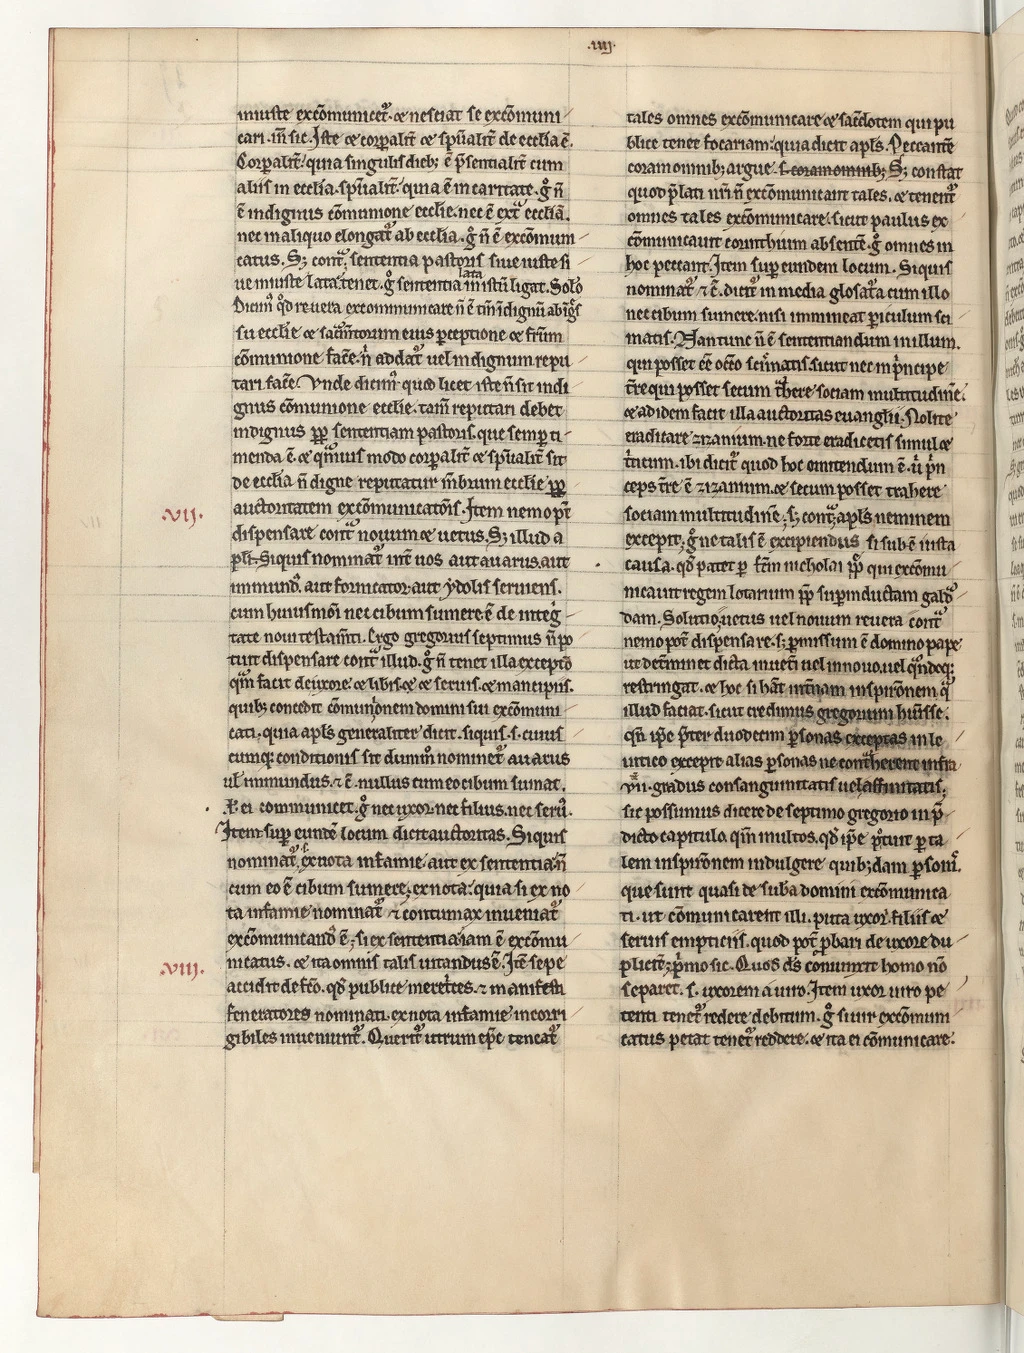 .iiij.
iniuste exco̅municet᷑. ⁊ nesciat se exco̅muni
cari. in̅ sic. Iste ⁊ corꝑalit᷑ ⁊ sp̅ualit᷑ de eccl̅ia e̅.
Corꝑalit᷑. quia singulis dieb; e̅ p̅sentialit᷑ cum
aliis in eccl̅ia. sp̅ualit᷑. quia e̅ in caritate. gͦ n̅
e̅ indignus co̅munione eccl̅ie. nec e̅ extͣ eccl̅ia̅.
nec in aliquo elongat᷑ ab eccl̅ia. gͦ n̅ e̅ exco̅mum
catus. S; contͣ. sententia pastoris siue iuste si
ue iniuste lata. tenet. gͦ sententia lata in istu̅ ligat. Solͦ
Dicim᷒ qd̅ reuera excommunicare n̅ e̅
sti eccl̅ie ⁊ sac̅m̅torum eius ꝑceptione ⁊ fr̅um
co̅munione fac̅e. n̅ addat᷑ uel indignum repu
tari fac̅e. Vnde dicim᷒ quod licet iste n̅ sit indi
gnus co̅munione eccl̅ie. tam̅ reputari debet
indignus ꝓp̅ sententiam pastoris. que semp ti
menda e̅ ⁊ qͣmuis modo corꝑalit᷑ ⁊ sp̅ualit᷑ sit
de eccl̅ia n̅ digne reputatur m̅brum eccl̅ie ꝓp̅
auctoritatem exco̅municato̅is. Item nemo pt̅
.VIJ.
dispensare contͣ nouum ⁊ uetus. S; illud a
pl̅i. Siquis nominat᷑ int᷑ uos aut auarus. aut
inmund᷒. aut fornicator. aut ydolis seruiens.
cum huiusmo̅i nec cibum sumere. e̅ de integ
tate noui testam̅ti. Ergo gregorius septimus n̅ po
tuit dispensare contͣ illud. gͦ n̅ tenet illa exceptͦ
qͣm facit de uxore. ⁊ lib̅is. ⁊ ⁊ seruis. ⁊ mancipiis.
quib; concedit co̅munionem domini sui exco̅muni
cati. quia apl̅s generaliter dicit. siquis. s. cuius
cumq; conditionis sit dum̅ nominet᷑ auarus
ul̅ inmundus. ⁊ c̅. nullus cum eo cibum sumat.
ei communicet. gͦ nec uxor. nec filius. nec seru᷒.
Item sup eunde̅ locum dicit auctoritas. Siquis
nominat᷑. s. ex nota infamie. aut ex sententia. n̅
cum eo e̅ cibum sumere. ex nota. quia si ex no
ta infamie nominat᷑ ⁊ contumax inueniat᷑
exco̅municand᷒ e̅. si ex sententia. iam e̅ exco̅mu
nicatus. ⁊ ita omnis talis uitandus e̅. Ite̅ sepe
.VIIJ.
accidit de fc̅o. qd̅ publice meret̅ces. ⁊ manifesti
feneratores nominati. ex nota infamie incorri
gibiles inueniunt᷑. Querit᷑ utrum ep̅c teneat᷑
tales omnes exco̅municare ⁊ sac̅dotem qui pu
blice tenet focariam. quia dicit apl̅s. Peccante̅
coram omnib; argue. s. coram omnib; S; constat
quod p̅lati nr̅i n̅ exco̅municant tales. ⁊ tenent᷑
omnes tales exco̅municare. sicut paulus ex
co̅municauit corinthium absente̅. gͦ omnes in
hoc peccant. Item sup eundem locum. Siquis
nominat᷑ ⁊ c̅. dicit᷑ in media glosat᷑a cum illo
nec cibum sumere. nisi immineat ꝑiculum sci
matis. Nam tunc n̅ e̅ sententiandum in illum.
qui posset e̅e occ̅o sci̅matis. sicut nec in p̅ncipe
t̅re qui posset secum t̅here sociam multitudine̅.
⁊ ad idem facit illa auctoritas euangl̅ii. Nolite
eradicare zizanium. ne forte eradicetis simul ⁊
t̅ticum. ibi dicit᷑ quod hoc omittendum e̅. u̅ p̅n
ceps t̅re e̅ zizanium. ⁊ secum posset trahere
sociam multitudine̅. s; contͣ. apl̅s neminem
excepit. gͦ ne talis e̅ excipiendus si sub e̅ iusta
causa. qd̅ patet ꝑ fc̅m nicholai pp̅ qui exco̅mu
nicauit regem lotarium ꝓp̅ sup̅inductam gald᷑
dam. Solutio. uetus uel nouum reuera contͣ
nemo pot̅ dispensare. s; ꝑmissum e̅ domino pape
ut det̅minet dicta in uet̅i uel in nouo. uel qͣndoq;
restringat. ⁊ hoc si ha̅t int̅nam inspiro̅nem qͣ
illud faciat. sicut credimus gregorium huisse.
qn̅ ip̅e p̅ter duodecim ꝑsonas exceptas in le
uitico excepit alias ꝑsonas ne cont̅herent infra
.VII. gradus consanguinitatis uel affinitatis.
sic possumus dicere de septimo gregorio in p̅
dicto capitulo. qm̅ multos. qd̅ ip̅e p̅tuit ꝑ ta
lem inspiro̅nem indulgere quib;dam ꝑsonis.
que sunt quasi de suba domini exco̅munica
ti. ut co̅municarent illi. puta uxor. filiis ⁊
seruis empticiis. quod pot̅ ꝓbari de uxore du
plicit᷑. p̅mo sic. Quos ds̅ coniunxit homo no̅
separet. s. uxorem a uiro. Item uxor uiro pe
tenti tenet᷑ redere debitum. gͦ si uir exco̅muni
catus petat tenet᷑ reddere. ⁊ ita ei co̅municare.